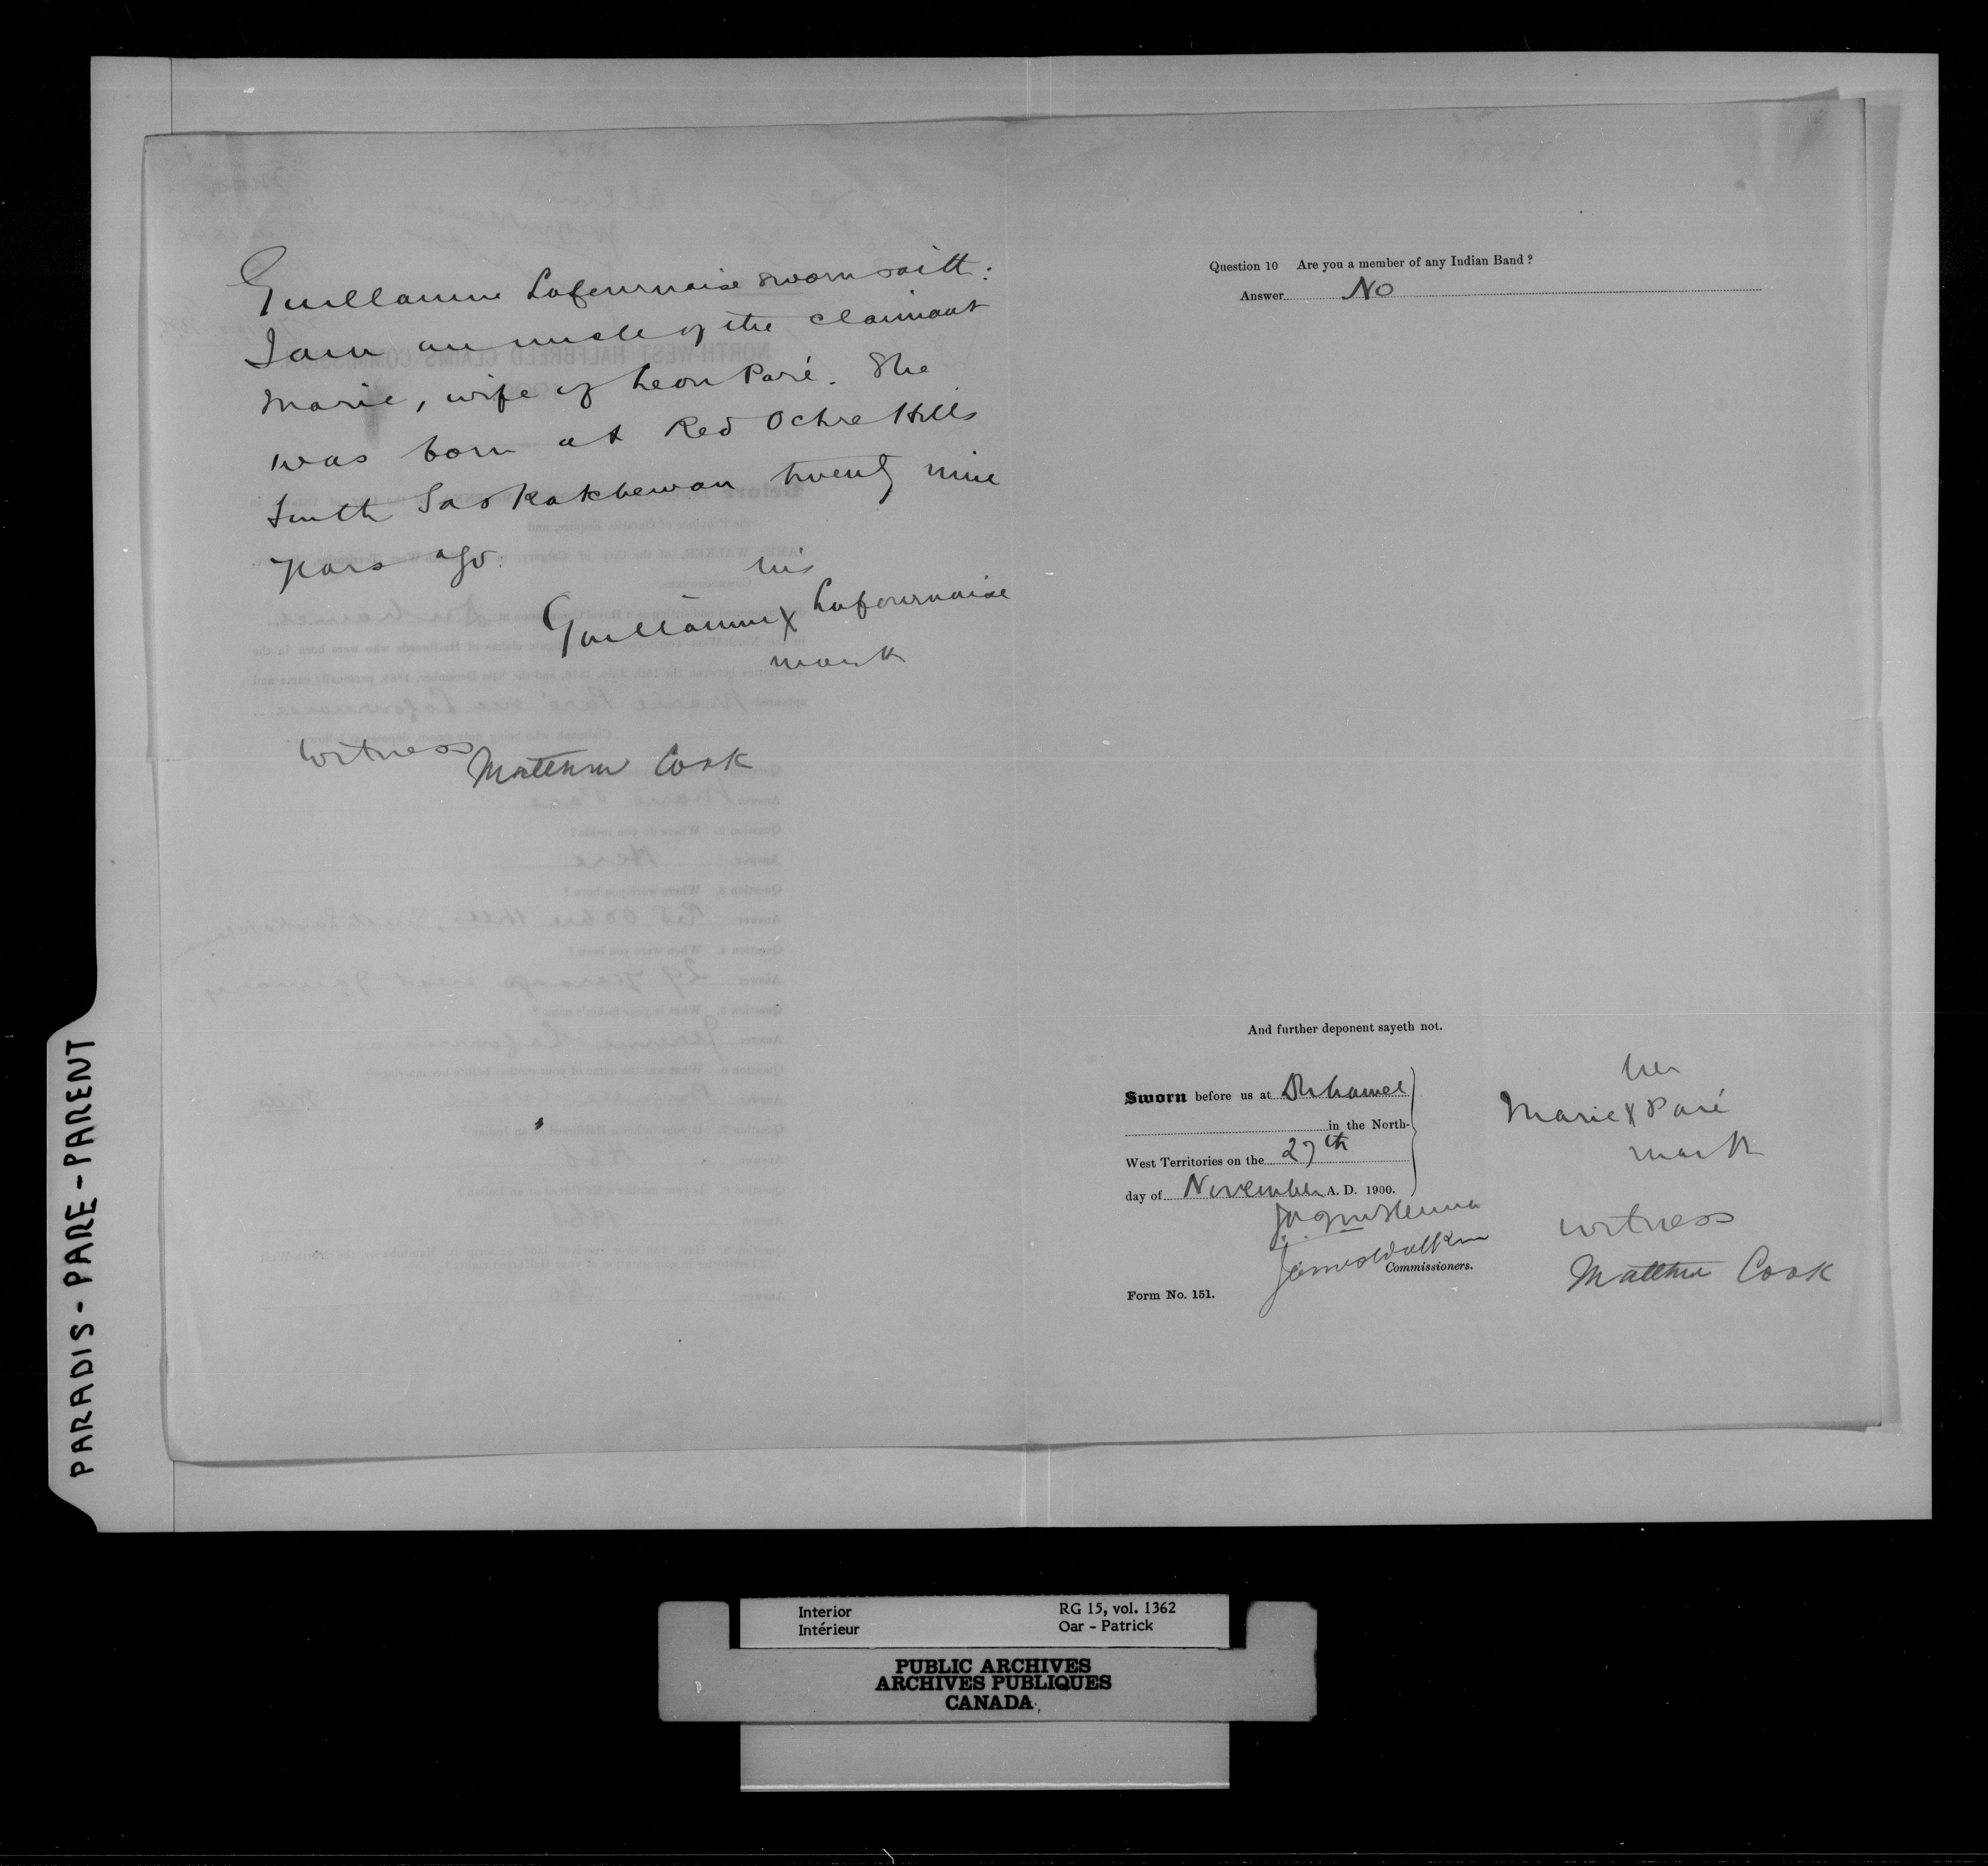 Guillaume Lafournaise sworn saith:
I am an uncle of the claimant
Marie, wife of Leon Paré. She
was born at Red Ochre Hills
South Saskatchewan twenty nine
years ago.
his
Guillaume X Lafournaise
mark
Witness Matthew Cook
Question 10 Are you a member of any Indian Band ?
Answer No
And further deponent sayeth not.
Sworn before us at Duhamel
in the North-
West Territories on the 27th
day of November A. D. 1900.
James Walker
Commissioners.
Form No. 151.
her
Marie X Paré
mark
witness
Matthew Cook
PARADIS - PARE - PARENT
Interior
Intérieur
RG 15, vol. 1362
Oar - Patrick
PUBLIC ARCHIVES
ARCHIVES PUBLIQUES
CANADA